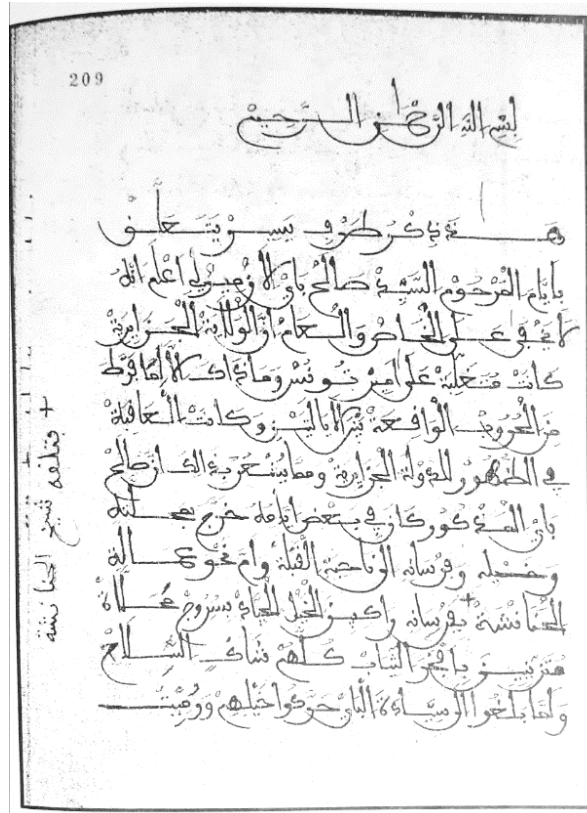 209
بِسْمِ اللَّهِ الرَّحْمَٰنِ الرَّحِيمِ
هذه ذكر طرف يسير يتعلق
بأيام المرحوم السيد صالح باي الأزميرلي اعلم أنه
لا يخفى على الخاص والعام أن الولاية الجزايرية
كانت متغلبة على أمر تونس وما ذاك إلا لما فرط
من الحروب الواقعة بين الايالتين وكانت العافية
في الظهور للدولة الجزايرية ومما يستغرب في ذلك ان صالح
باي المذكور كان في بعض ايامه خرج
وخيله وفرسانه الى ناحية القبلة وام نحو عمالة
الحنانشة + بفرسانه راكبين الخيل الجياد بسروج
متزينين بافخر الثياب كلهم شاك السلاح
ولما بلغوا الى الباي حركوا خيلهم
+ فتلقه شيخ الحنانشة